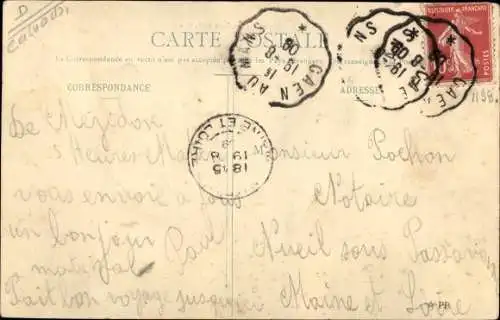 D
Calvados
CARTE POSTALE
La Correspondance au recto n'est pas acceptée
CORRESPONDANCE
ADRESSE
CAEN AU MANS
19-8
08
REPUBLIQUE FRANÇAISE
POSTES
18 45
19
8
ET LOIRE
De Mézidon
5 heures
vous envoie à tous
un bonjour Paul
matinal
Fait bon voyage jusqu'ici
Monsieur Pochon
Notaire
Nueil sous Passavant
Maine et Loire